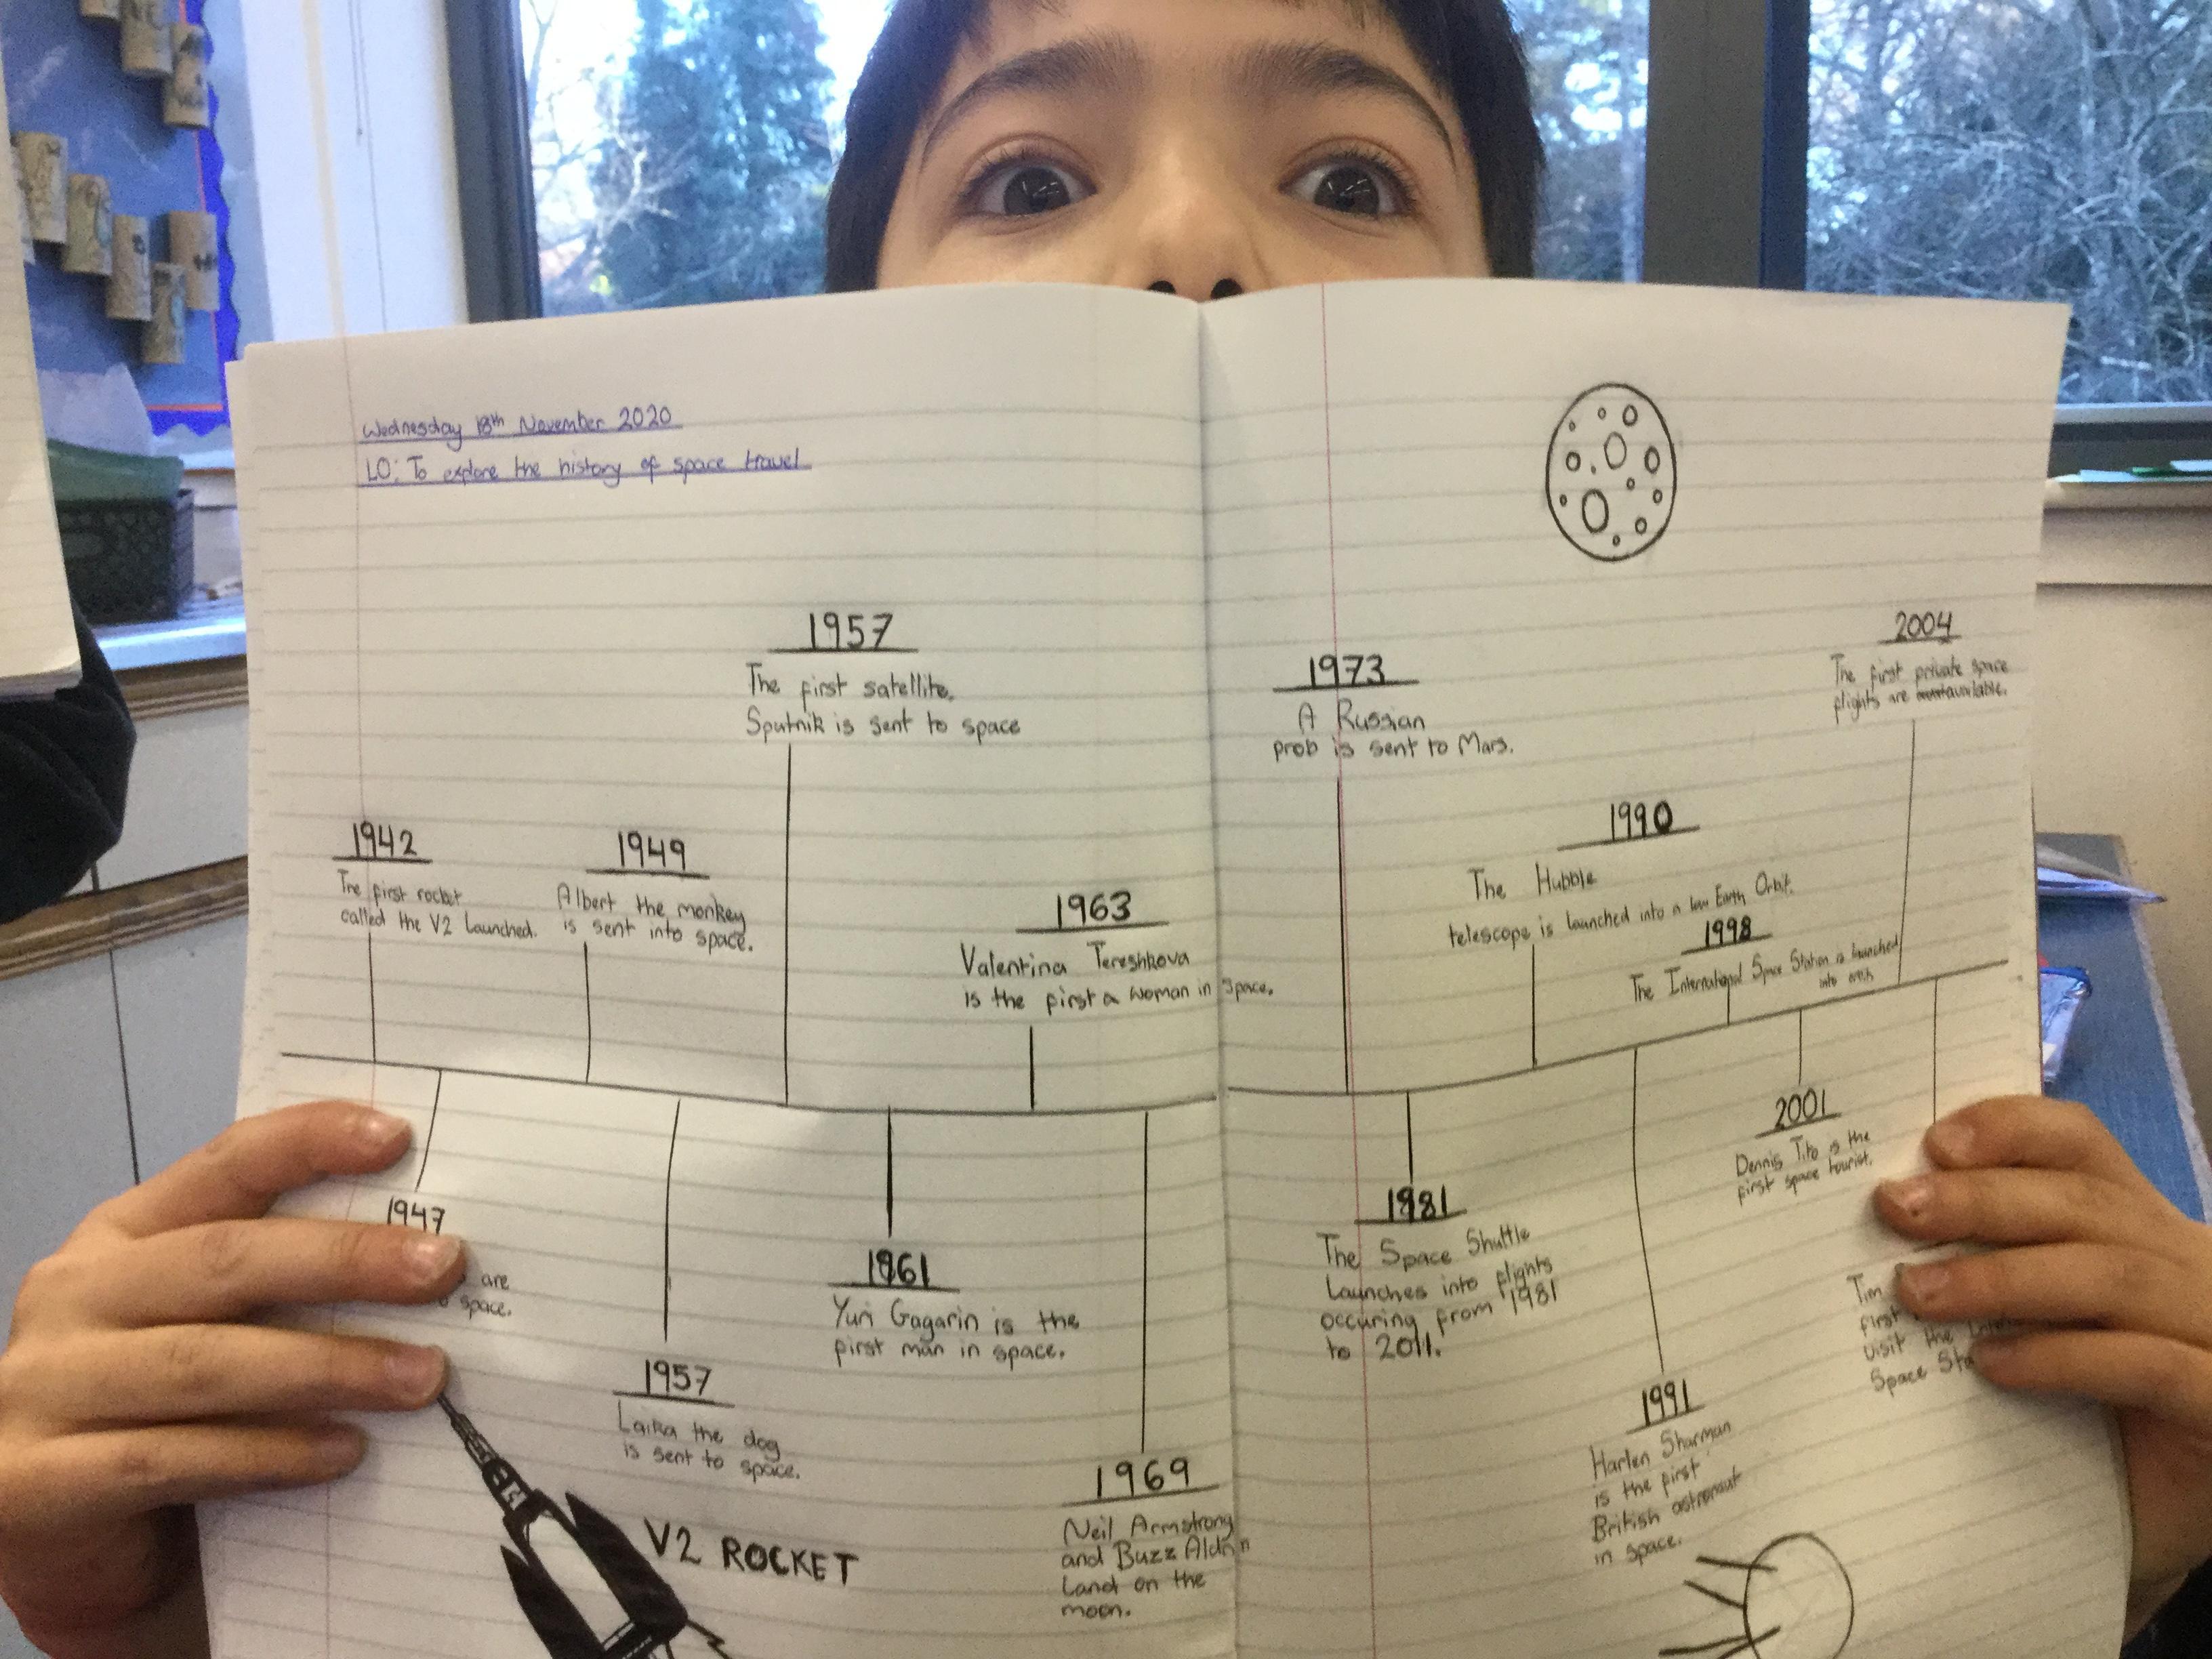 Wednesday 18th November 2020
LO: To explore the history of space travel
1942
The first rocket
called the V2 Launched.
1947
are
space.
1949
Albert the monkey
is sent into space.
1957
Laika the dog
is sent to space.
1957
The first satellite.
Sputnik is sent to space
1961
Yuri Gagarin is the
first man in space.
1963
Valentina Tereshkova
is the first a woman in space.
1969
Neil Armstrong
and Buzz Aldrin
Land on the
moon.
V2 ROCKET
1973
A Russian
prob is sent to Mars.
1981
The Space Shuttle
Launches into flights
occuring from 1981
to 2011.
1990
The Hubble
telescope is launched into a low Earth Orbit.
1991
Harlen Sharman
is the first
British astronaut
in space.
1998
The International Space Station is launched
into
2001
Dennis Tito is the
first space tourist.
2004
The first private space
flights are available.
Tim
first
visit the
Space